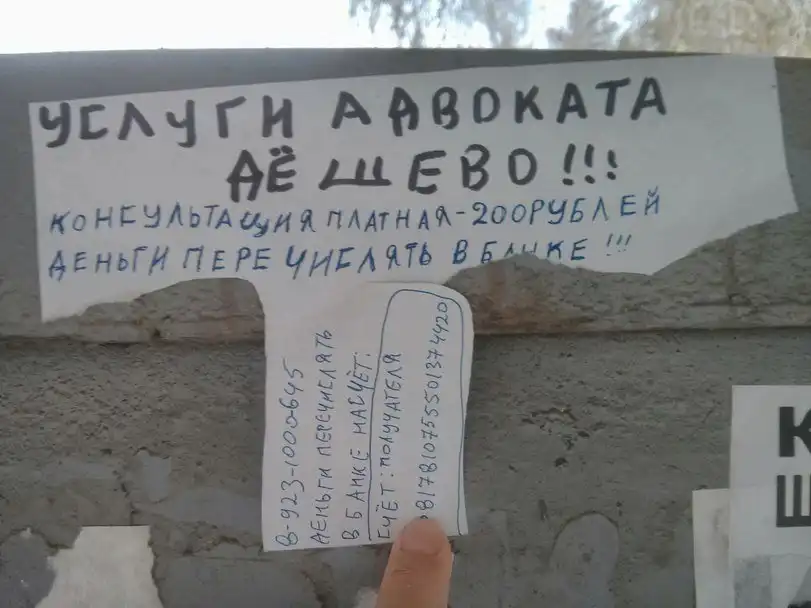 УСЛУГИ АДВОКАТА
ДЁШЕВО!!!
КОНСУЛЬТАЦИЯ ПЛАТНАЯ-200РУБЛЕЙ
ДЕНЬГИ ПЕРЕЧИСЛЯТЬ В БАНКЕ!!!
8-923-1000645
ДЕНЬГИ ПЕРЕЧИСЛЯТЬ
В БАНКЕ НАСЧЁТ:
СЧЁТ: ПОЛУЧАТЕЛЯ
К